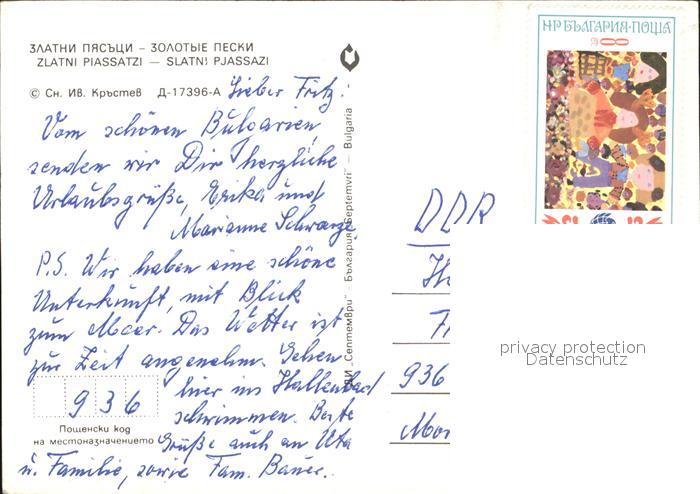 ЗЛАТНИ ПЯСЪЦИ – ЗОЛОТЫЕ ПЕСКИ
ZLATNI PIASSATZI — SLATNI PJASSAZI
© Сн. Ив. Кръстев Д-17396-А
Lieber Fritz!
Vom schönen Bulgarien
senden wir Dir herzliche
Urlaubsgrüße, Erika und
Marianne Schwarze
P.S. Wir haben eine schöne
Unterkunft, mit Blick
zum Meer. Das Wetter ist
zur Zeit angenehm. Gehen
hier ins Hallenbad
schwimmen. Beste
Grüße auch an Uta
u. Familie, sowie Fam. Bauer.
936
Пощенски код
на местоназначението
ДИ „Септември" – България „Septemvri" – Bulgaria
НР БЪЛГАРИЯ·ПОЩА
8
DDR
936
privacy protection
Datenschutz